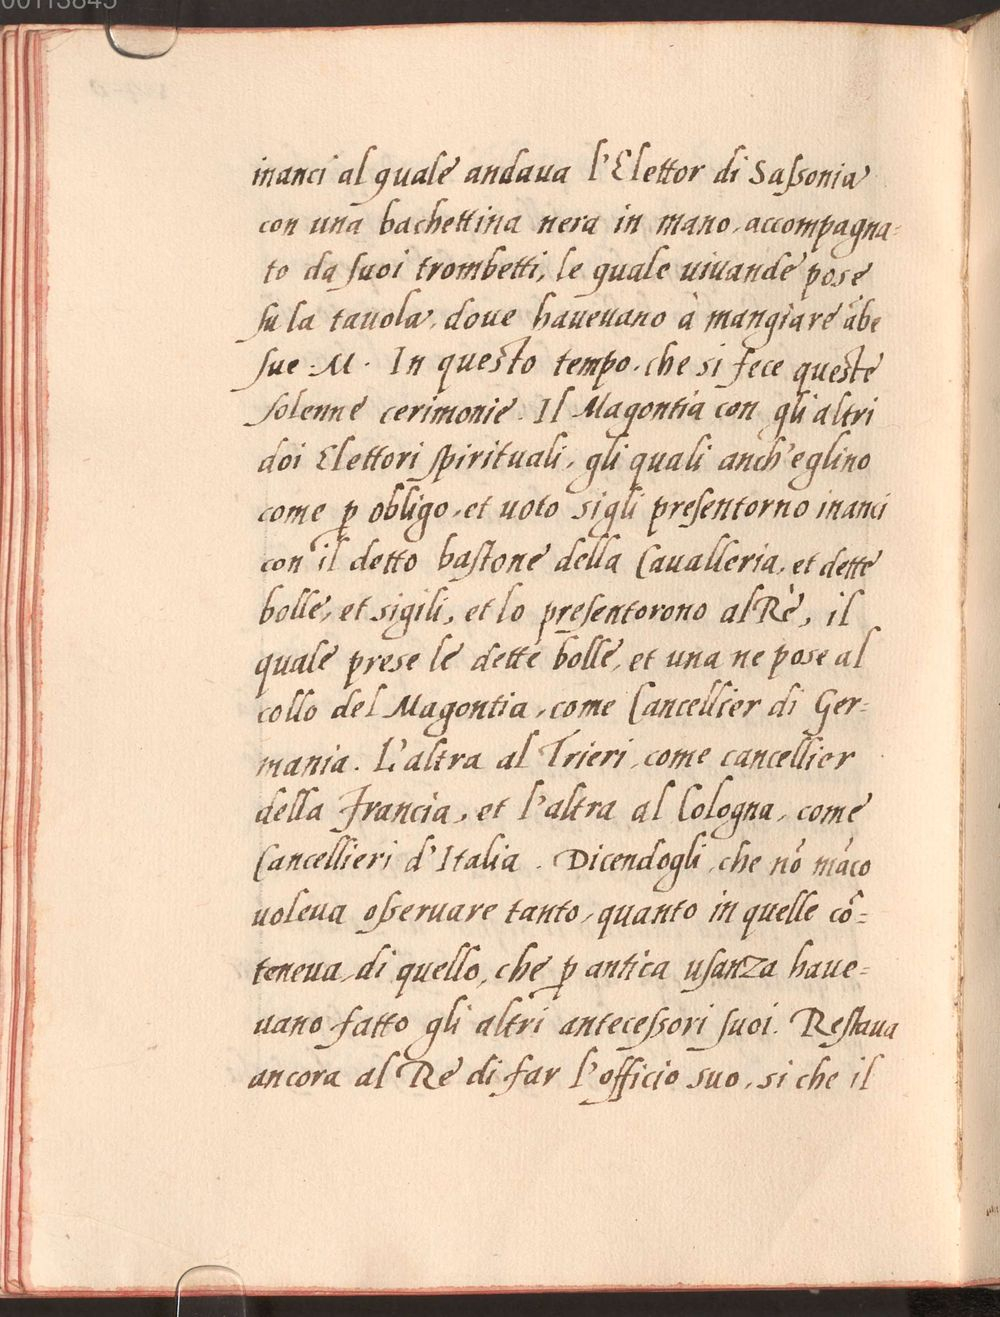 00113845
inanci al quale andaua l'Elettor di Saſsonia
con una bachettina nera in mano, accompagna-
to da ſuoi trombetti, le quale uiuande pose
ſu la tauola, doue haueuano à mangiare ãbe
ſue .M. In questo tempo, che si fece queste
ſolenne cerimonie. Il Magontia con gli altri
doi Elettori ſpirituali, gli quali anch'eglino
come ꝑ obligo, et uoto sigli preſentorno inanci
con il detto baſtone della Caualleria, et dette
bolle, et sigili, et lo preſentorono al Rè, il
quale prese le dette bolle, et una ne pose al
collo del Magontia, come Cancellier di Ger-
mania. L'altra al Trieri, come cancellier
della Francia, et l'altra al Cologna, come
Cancellieri d'Italia. Dicendogli, che nõ mãco
uoleua oſseruare tanto, quanto in quelle cõ-
teneua, di quello, che ꝑ antica uſanza haue-
uano fatto gli altri anteceſsori ſuoi. Reſtaua
ancora al Rè di far l'officio suo, si che il